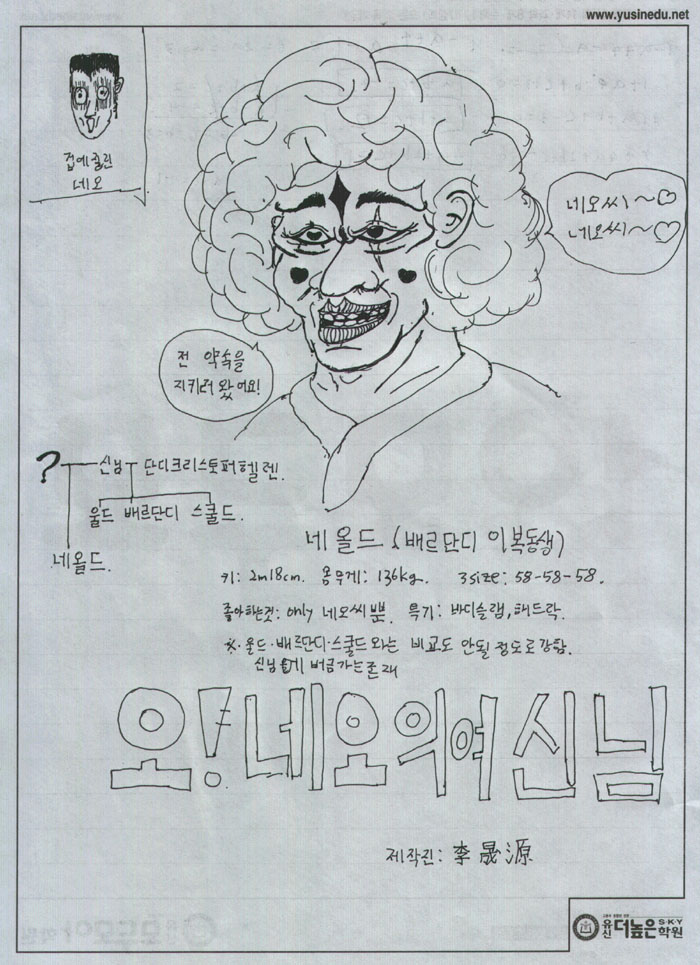 www.yusinedu.net
겁에 질린
네오
네오씨~♡
네오씨~♡
전 약속을
지키러 왔어요!
? 신님 단디크리스토퍼헬렌.
울드 배르단디 스쿨드.
네올드.
네올드 (배르단디 이복동생)
키: 2m18cm. 몸무게: 136kg. 3size: 58-58-58.
좋아하는것: only 네오씨 뿐. 특기: 바디슬램, 헤드락.
※·울드·배르단디·스쿨드와는 비교도 안될 정도로 강함.
신님 버금가는 존재
오! 네오의 여신님
제작진: 李晟源
유신 더높은 SKY 학원